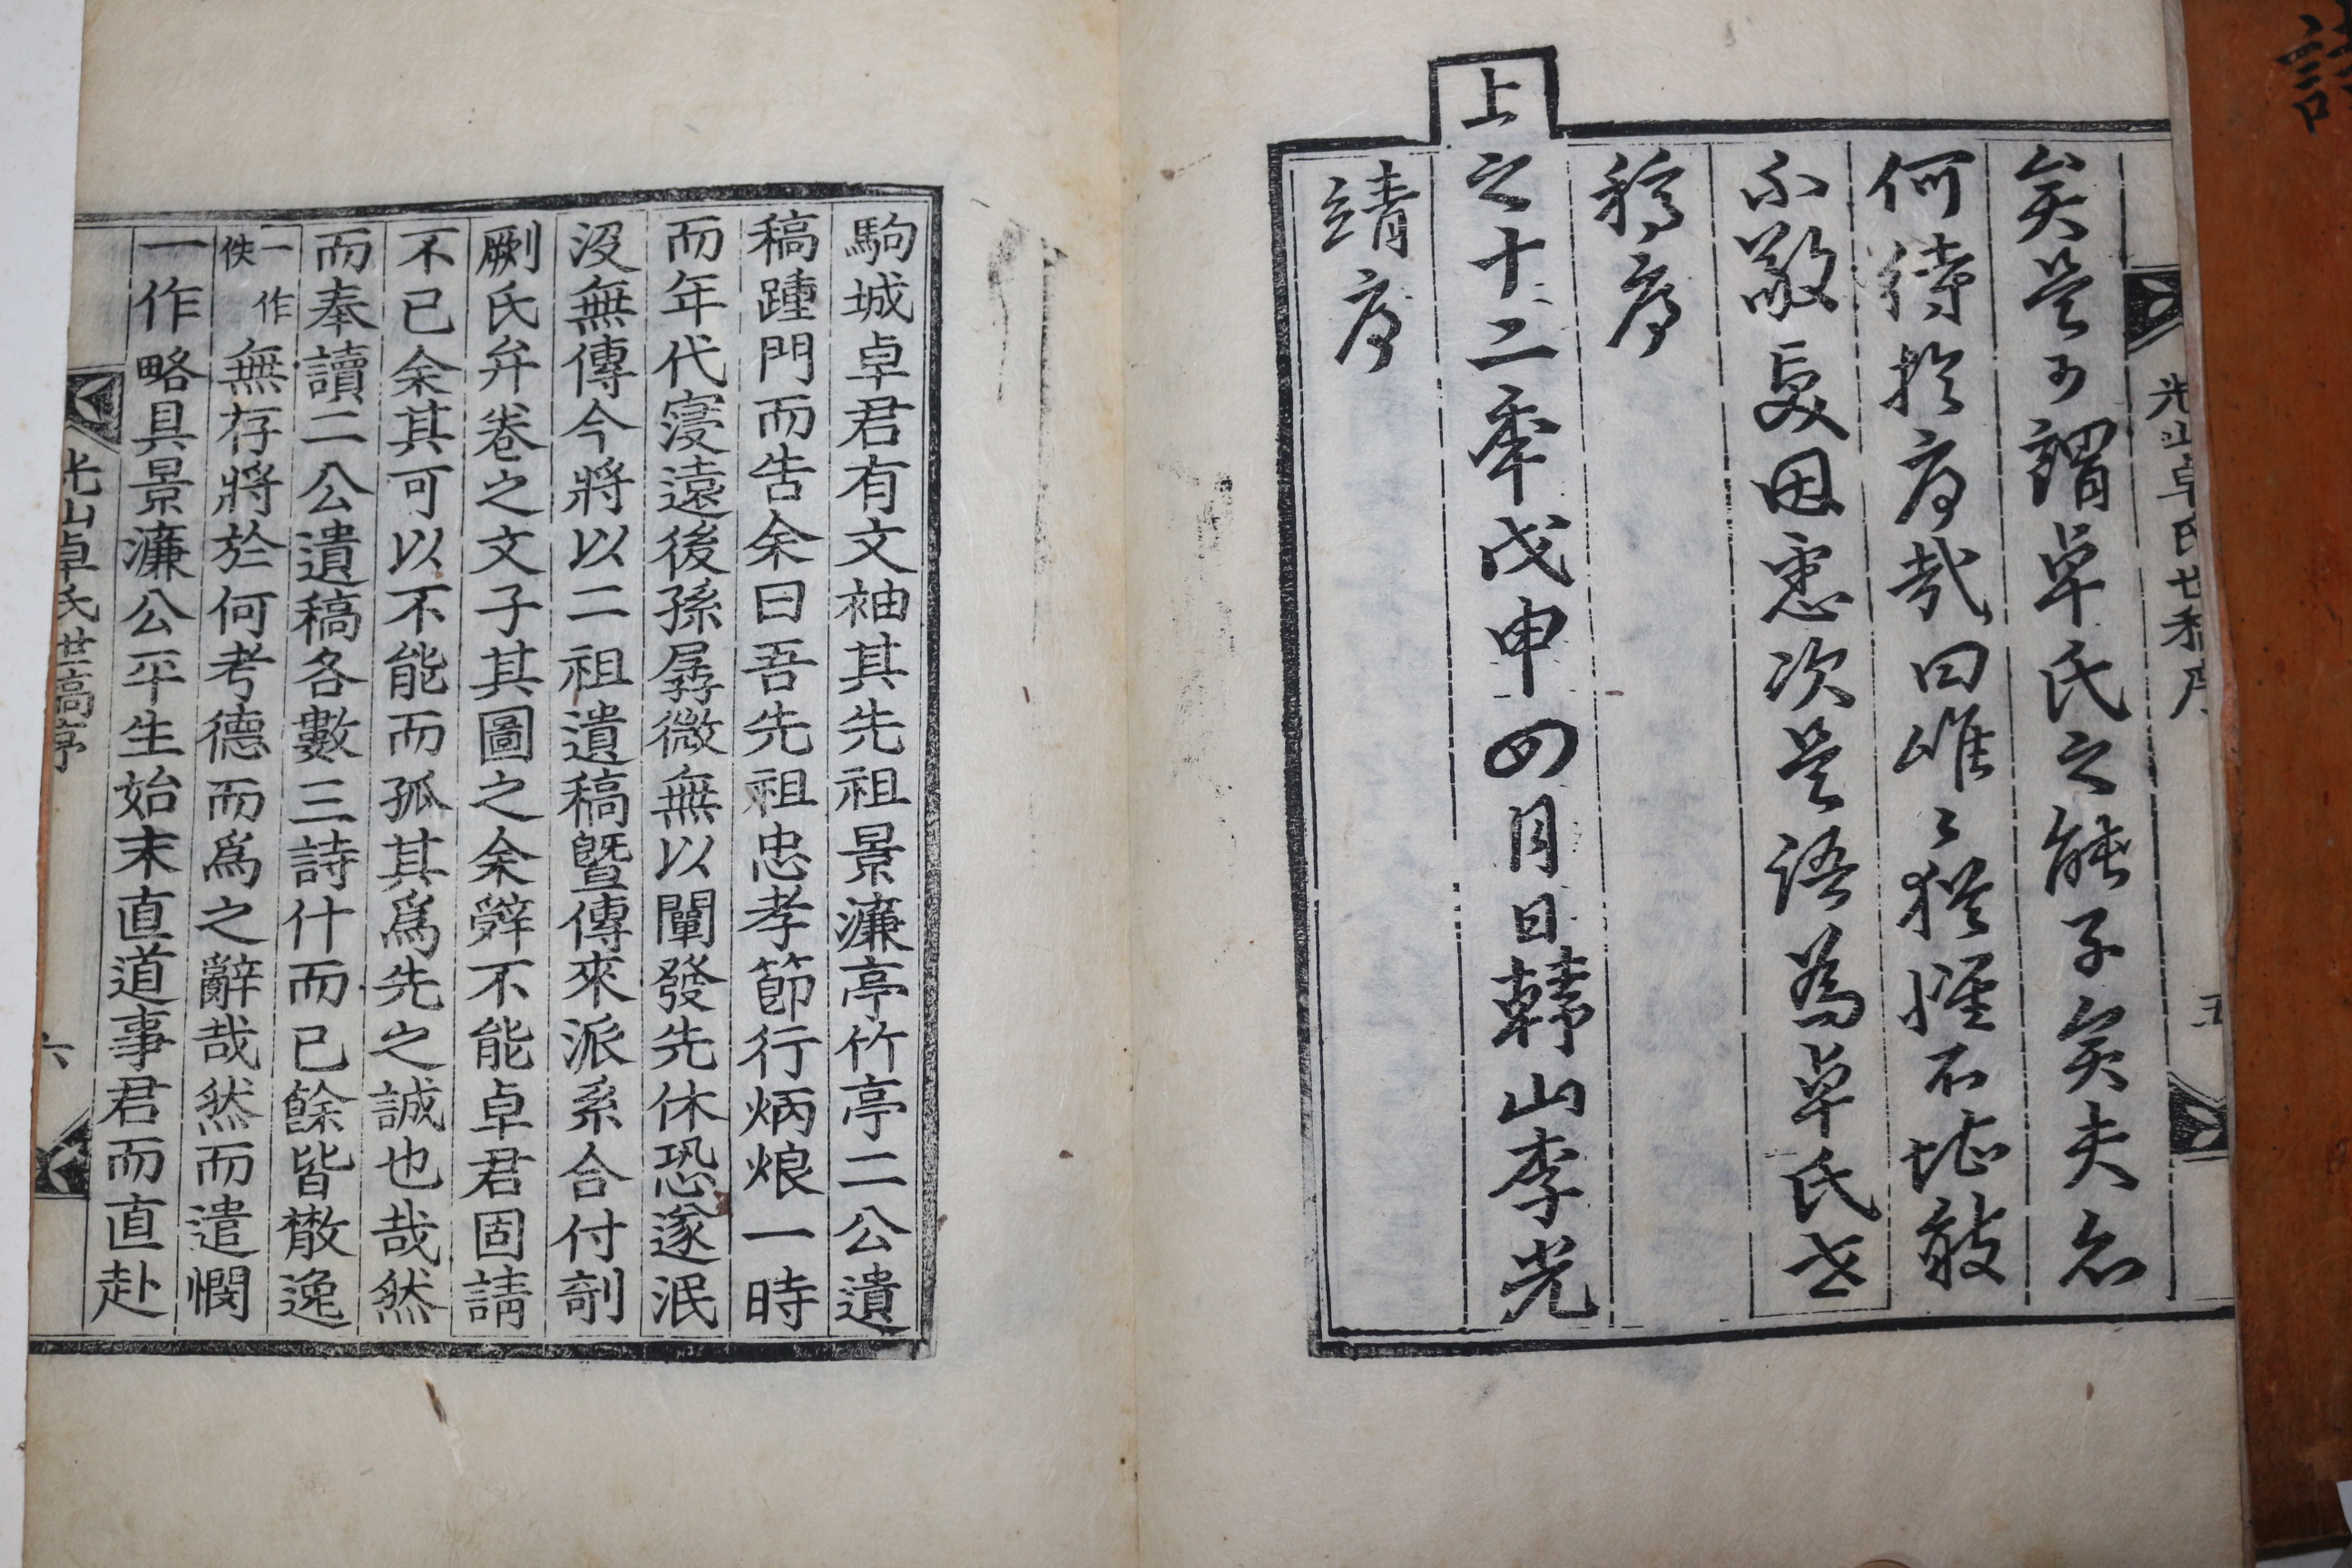 矣是可謂卓氏之能子矣夫名
何待於序哉曰唯唯猶懼不
不敢
因
次是語爲卓氏世
稿序
上之十二年戊申四月日韓山李光
靖序
光山卓氏世稿序
五
駒城卓君有文袖其先祖景濂亭竹亭二公遺
稿踵門而告余曰吾先祖忠孝節行炳烺一時
而年代寖遠後孫孱微無以闡發先休恐遂泯
沒無傳今將以二祖遺稿曁傳來派系合付剞
劂氏弁卷之文子其圖之余辤不能卓君固請
不已余其可以不能而孤其爲先之誠也哉然
而奉讀二公遺稿各數三詩什而已餘皆散逸
一作佚無存將於何考德而爲之辭哉然而遣憫
一作略具景濂公平生始末直道事君而直赴
光山卓氏世稿序
六